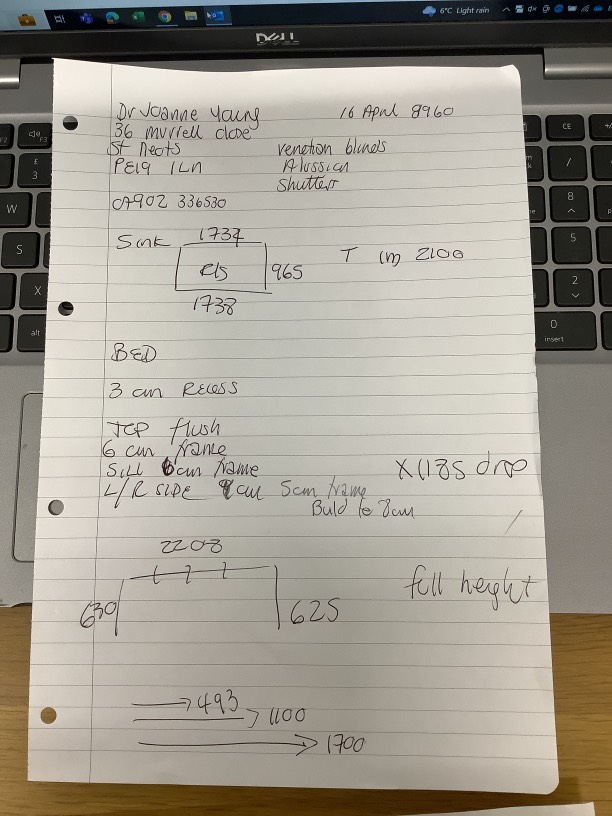 6°C Light rain
DELL
Dr Joanne Young 16 April 8960
36 Murrell close
St Neots venetian blinds
PE19 1LN Alussian
Shutters
07902 336530
Sink 1737
R/s 965 T (m) 2100
1738
BED
3 cm RECESS
TOP flush
6 cm frame
SILL 6cm frame X1185 drop
L/R SIDE 5cm frame
Build to 8cm
2208
full height
630 625
493
1100
1700